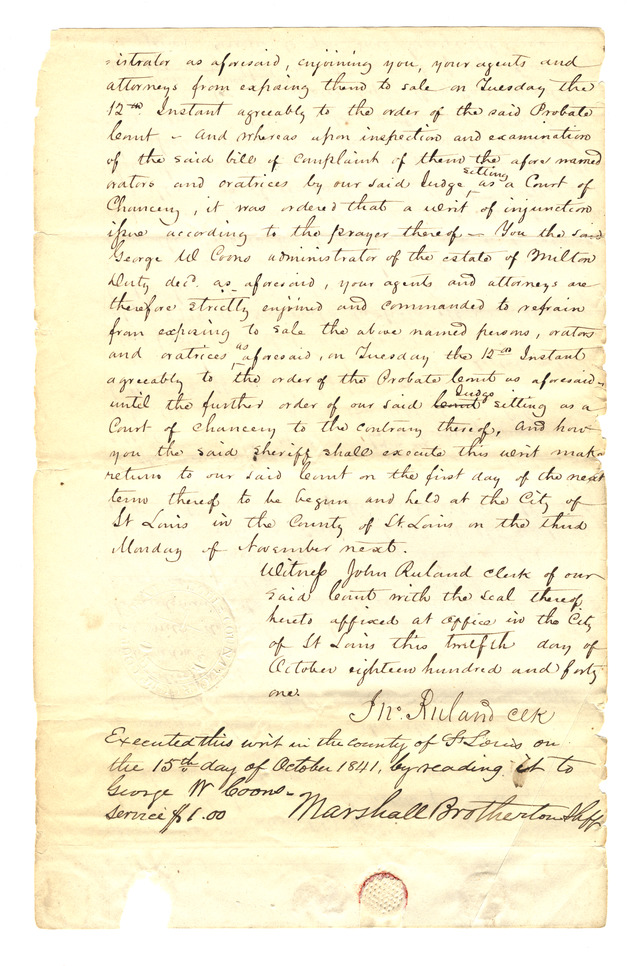 istrator as aforesaid, enjoining you, your agents and
attorneys from exposing them to sale on Tuesday the
12th Instant agreeably to the order of the said Probate
Court – And whereas upon inspection and examination
of the said bill of Complaint of them the afore named
orators and oratrices by our said Judge sitting as a Court of
Chancery, it was ordered that a writ of injunction
issue according to the prayer thereof – You the said
George W Coons administrator of the estate of Milton
Duty decd. as aforesaid, your agents and attorneys are
therefore strictly enjoined and commanded to refrain
from exposing to sale the above named persons, orators
and oratrices as aforesaid, on Tuesday the 12th Instant
agreeably to the order of the Probate Court as aforesaid –
until the further order of our said Court Judge sitting as a
Court of Chancery to the contrary thereof, And how
you the said Sheriff shall execute this writ make
return to our said Court on the first day of the next
term thereof to be begun and held at the City of
St Louis in the County of St Louis on the third
Monday of November next.
Witness John Ruland Clerk of our
said Court with the seal thereof
hereto affixed at office in the City
of St Louis this twelfth day of
October eighteen hundred and forty
one.
Jno. Ruland clk
Executed this writ in the county of St Louis on
the 15th day of October 1841, by reading it to
George W Coons –
Service $1.00 Marshall Brotherton Shff